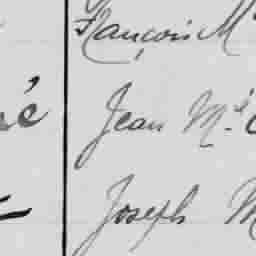 François M
Jean M.é
Joseph M